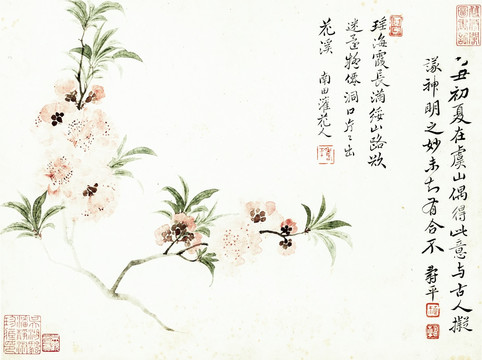 乙丑初夏在虞山偶得此意與古人擬
議神明之妙未知有合不 壽平
瑶海霞長滿綏山路欲
迷 僊洞口片片出
花溪 南田灌花人